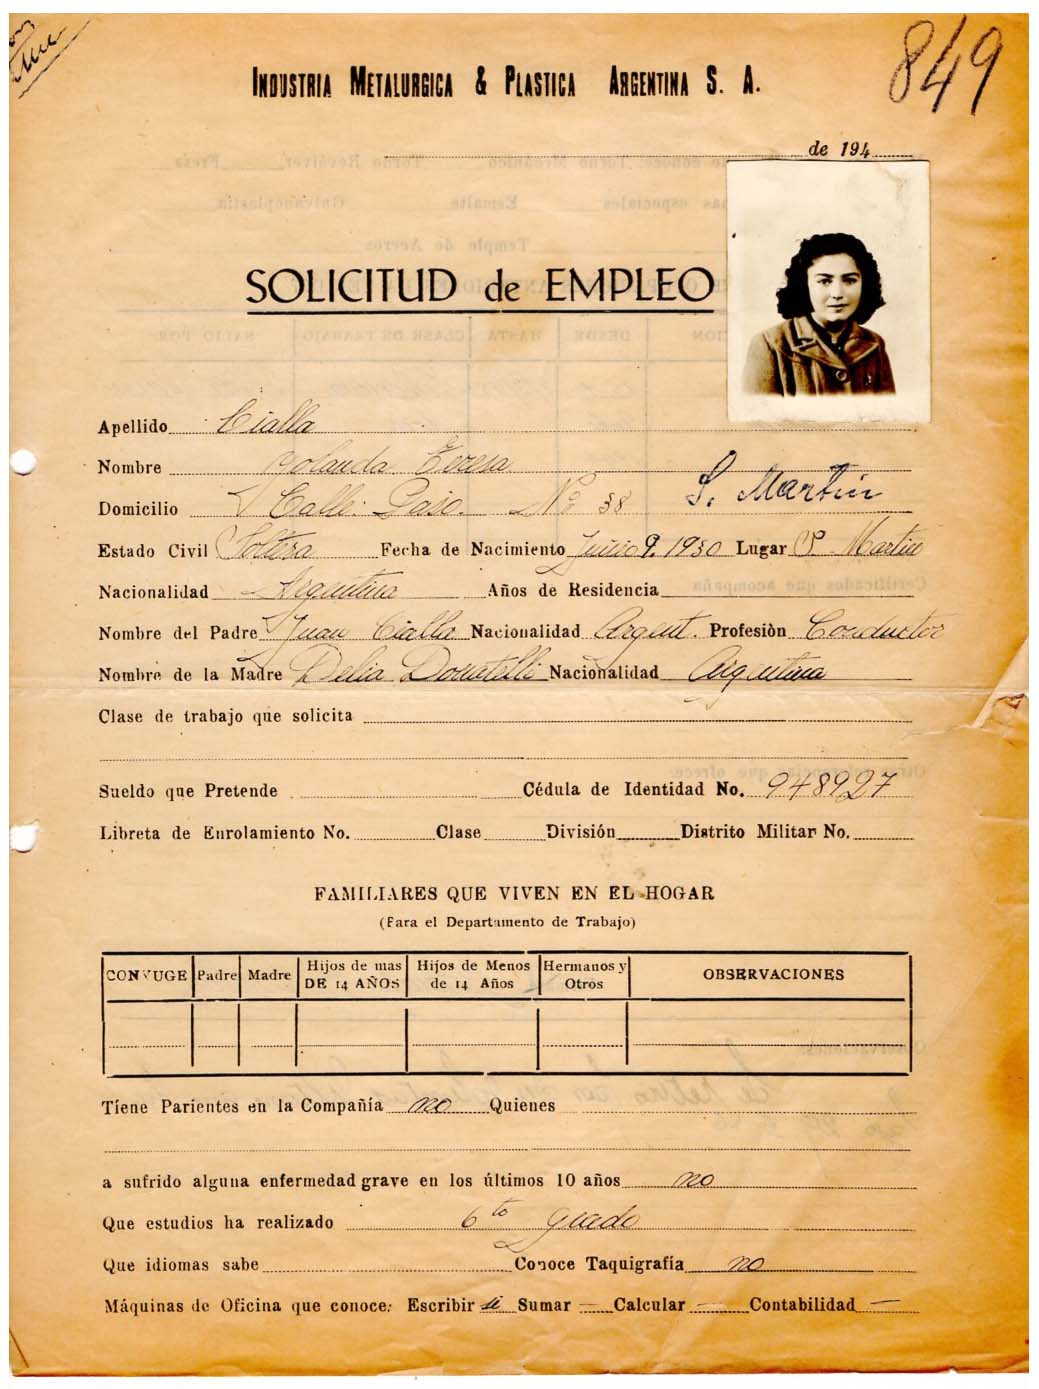 849
INDUSTRIA METALURGICA & PLASTICA ARGENTINA S. A.
de 194
SOLICITUD de EMPLEO
Apellido Cialla
Nombre Yolanda Teresa
Domicilio Calle Paso. Nº 38 S. Martín
Estado Civil Soltera Fecha de Nacimiento Junio 9. 1930 Lugar S. Martin
Nacionalidad Argentina Años de Residencia
Nombre del Padre Juan Cialla Nacionalidad Argent. Profesiòn Conductor
Nombre de la Madre Delia Donatelli Nacionalidad Argentina
Clase de trabajo que solicita
Sueldo que Pretende Cédula de Identidad No. 948927
Libreta de Enrolamiento No. Clase División Distrito Militar No.
FAMILIARES QUE VIVEN EN EL HOGAR
(Para el Departamento de Trabajo)
CONYUGE Padre Madre Hijos de mas DE 14 AÑOS Hijos de Menos de 14 Años Hermanos y Otros OBSERVACIONES
Tiene Parientes en la Compañía no Quienes
a sufrido alguna enfermedad grave en los últimos 10 años no
Que estudios ha realizado 6to grado
Que idiomas sabe Conoce Taquigrafía no
Máquinas de Oficina que conoce: Escribir si Sumar — Calcular — Contabilidad —